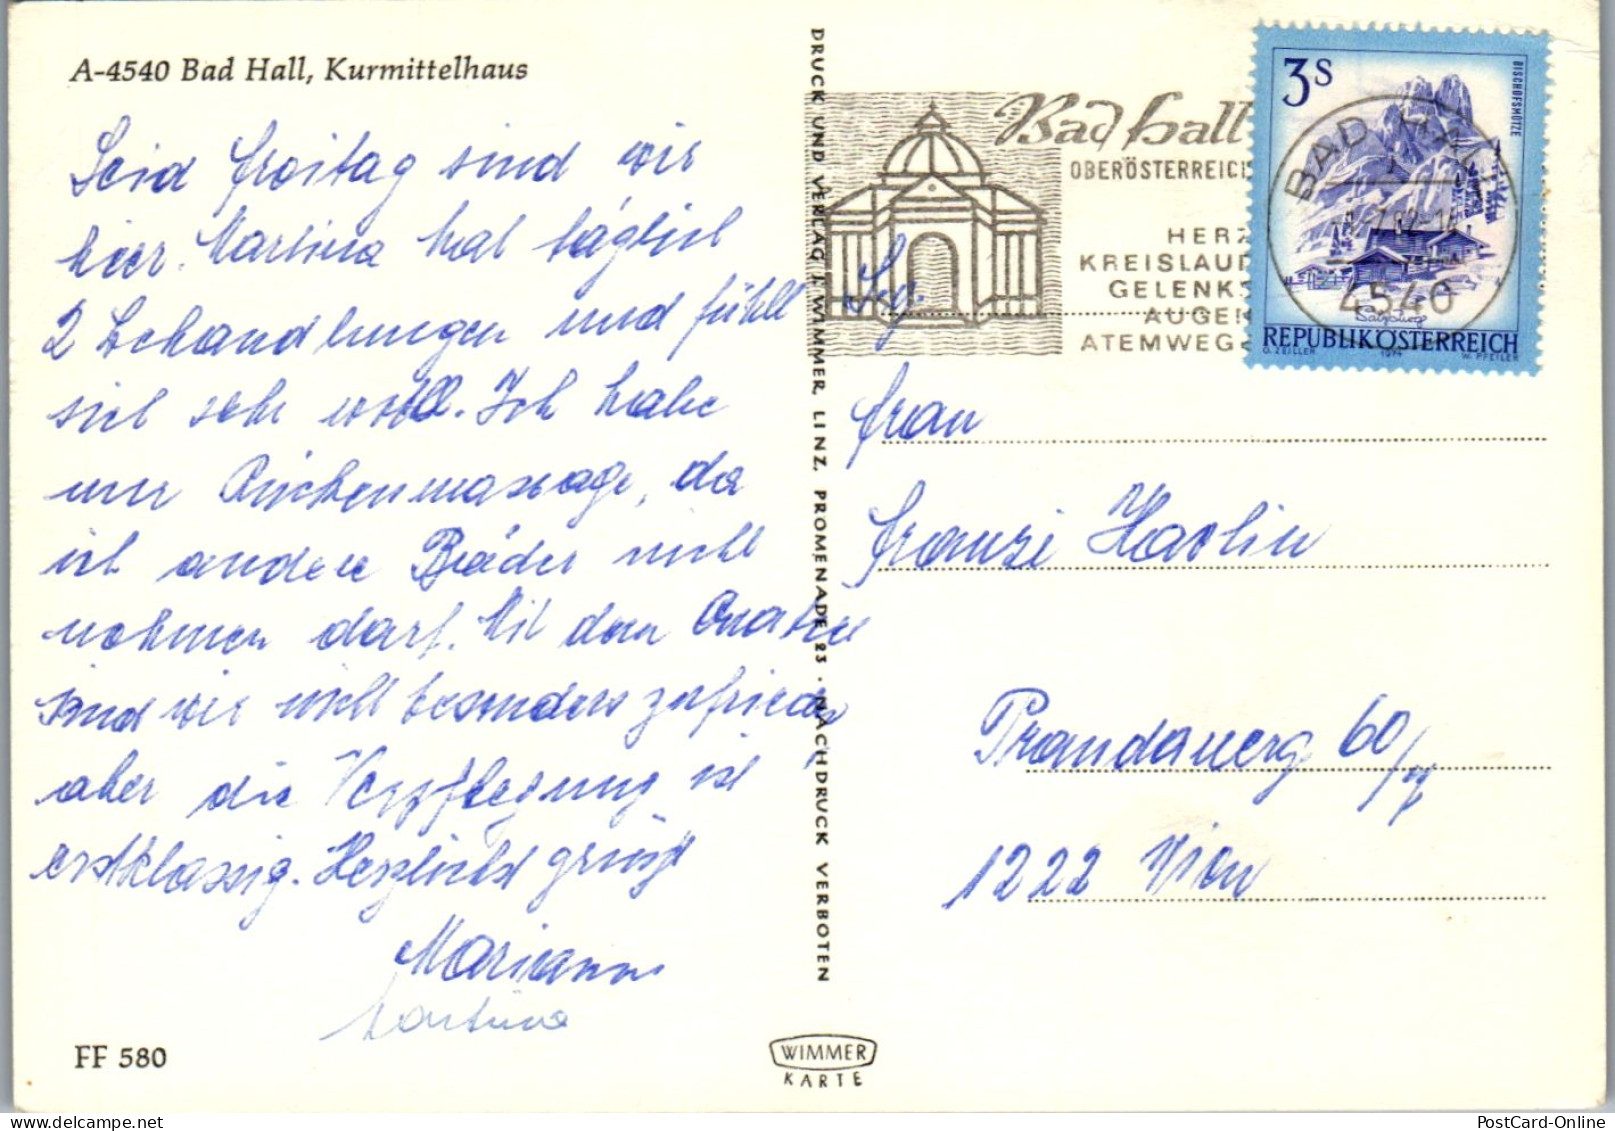 A-4540 Bad Hall, Kurmittelhaus
Seid Freitag sind wir
hier. Martina hat täglich
2 Behandlungen und fühlt
sich sehr wohl. Ich habe
nur Rückenmassage, da
ich andere Bäder nicht
nehmen darf. Mit dem Quartier
sind wir nicht besonders zufrieden
aber die Verpflegung ist
erstklassig. Herzlichst grüßt
Marianne
Martina
FF 580
DRUCK UND VERLAG J. WIMMER, LINZ, PROMENADE 23 · NACHDRUCK VERBOTEN
WIMMER
KARTE
Bad Hall
OBERÖSTERREICH
HERZ
KREISLAUF
GELENKS
AUGEN
ATEMWEGE
3S
BISCHOFSMÜTZE
Salzburg
REPUBLIK ÖSTERREICH
O. ZEILLER 1974 W. PFEILER
BAD HALL
4540
Frau
Franzi
Prandauerg 60/
1222 Wien
PostCard-Online